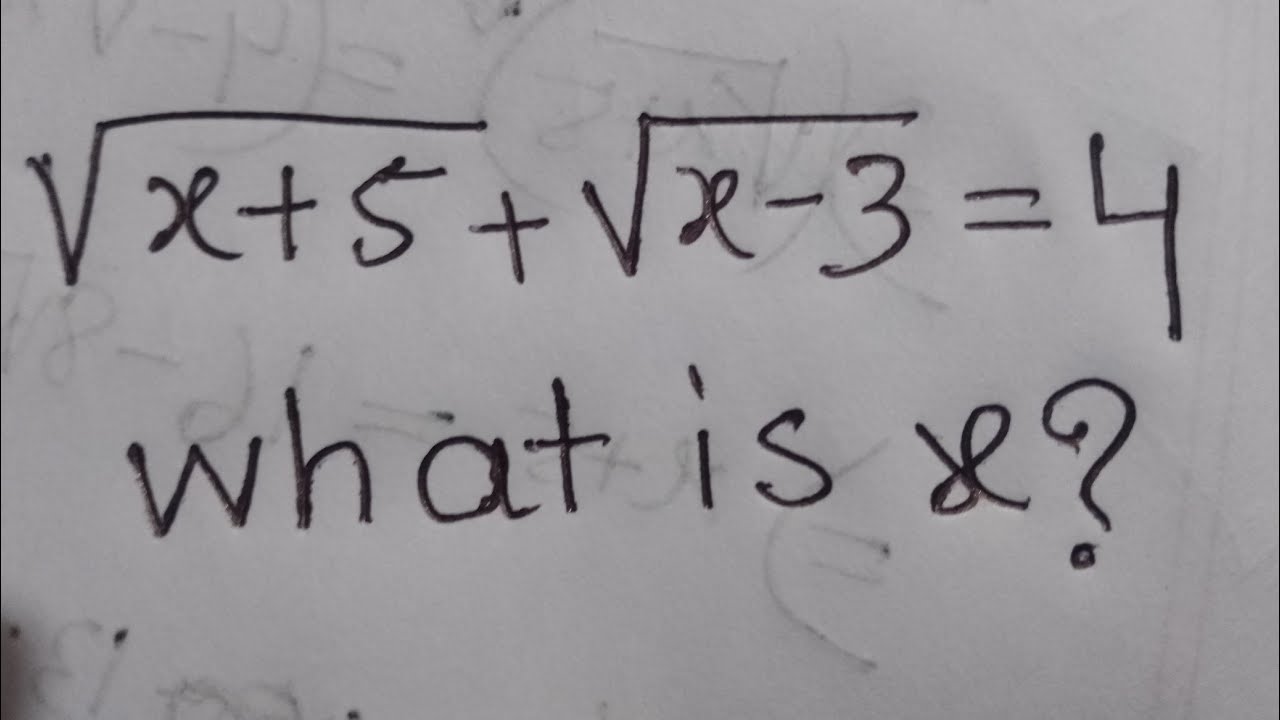 √x+5 + √x-3 = 4
what is x?